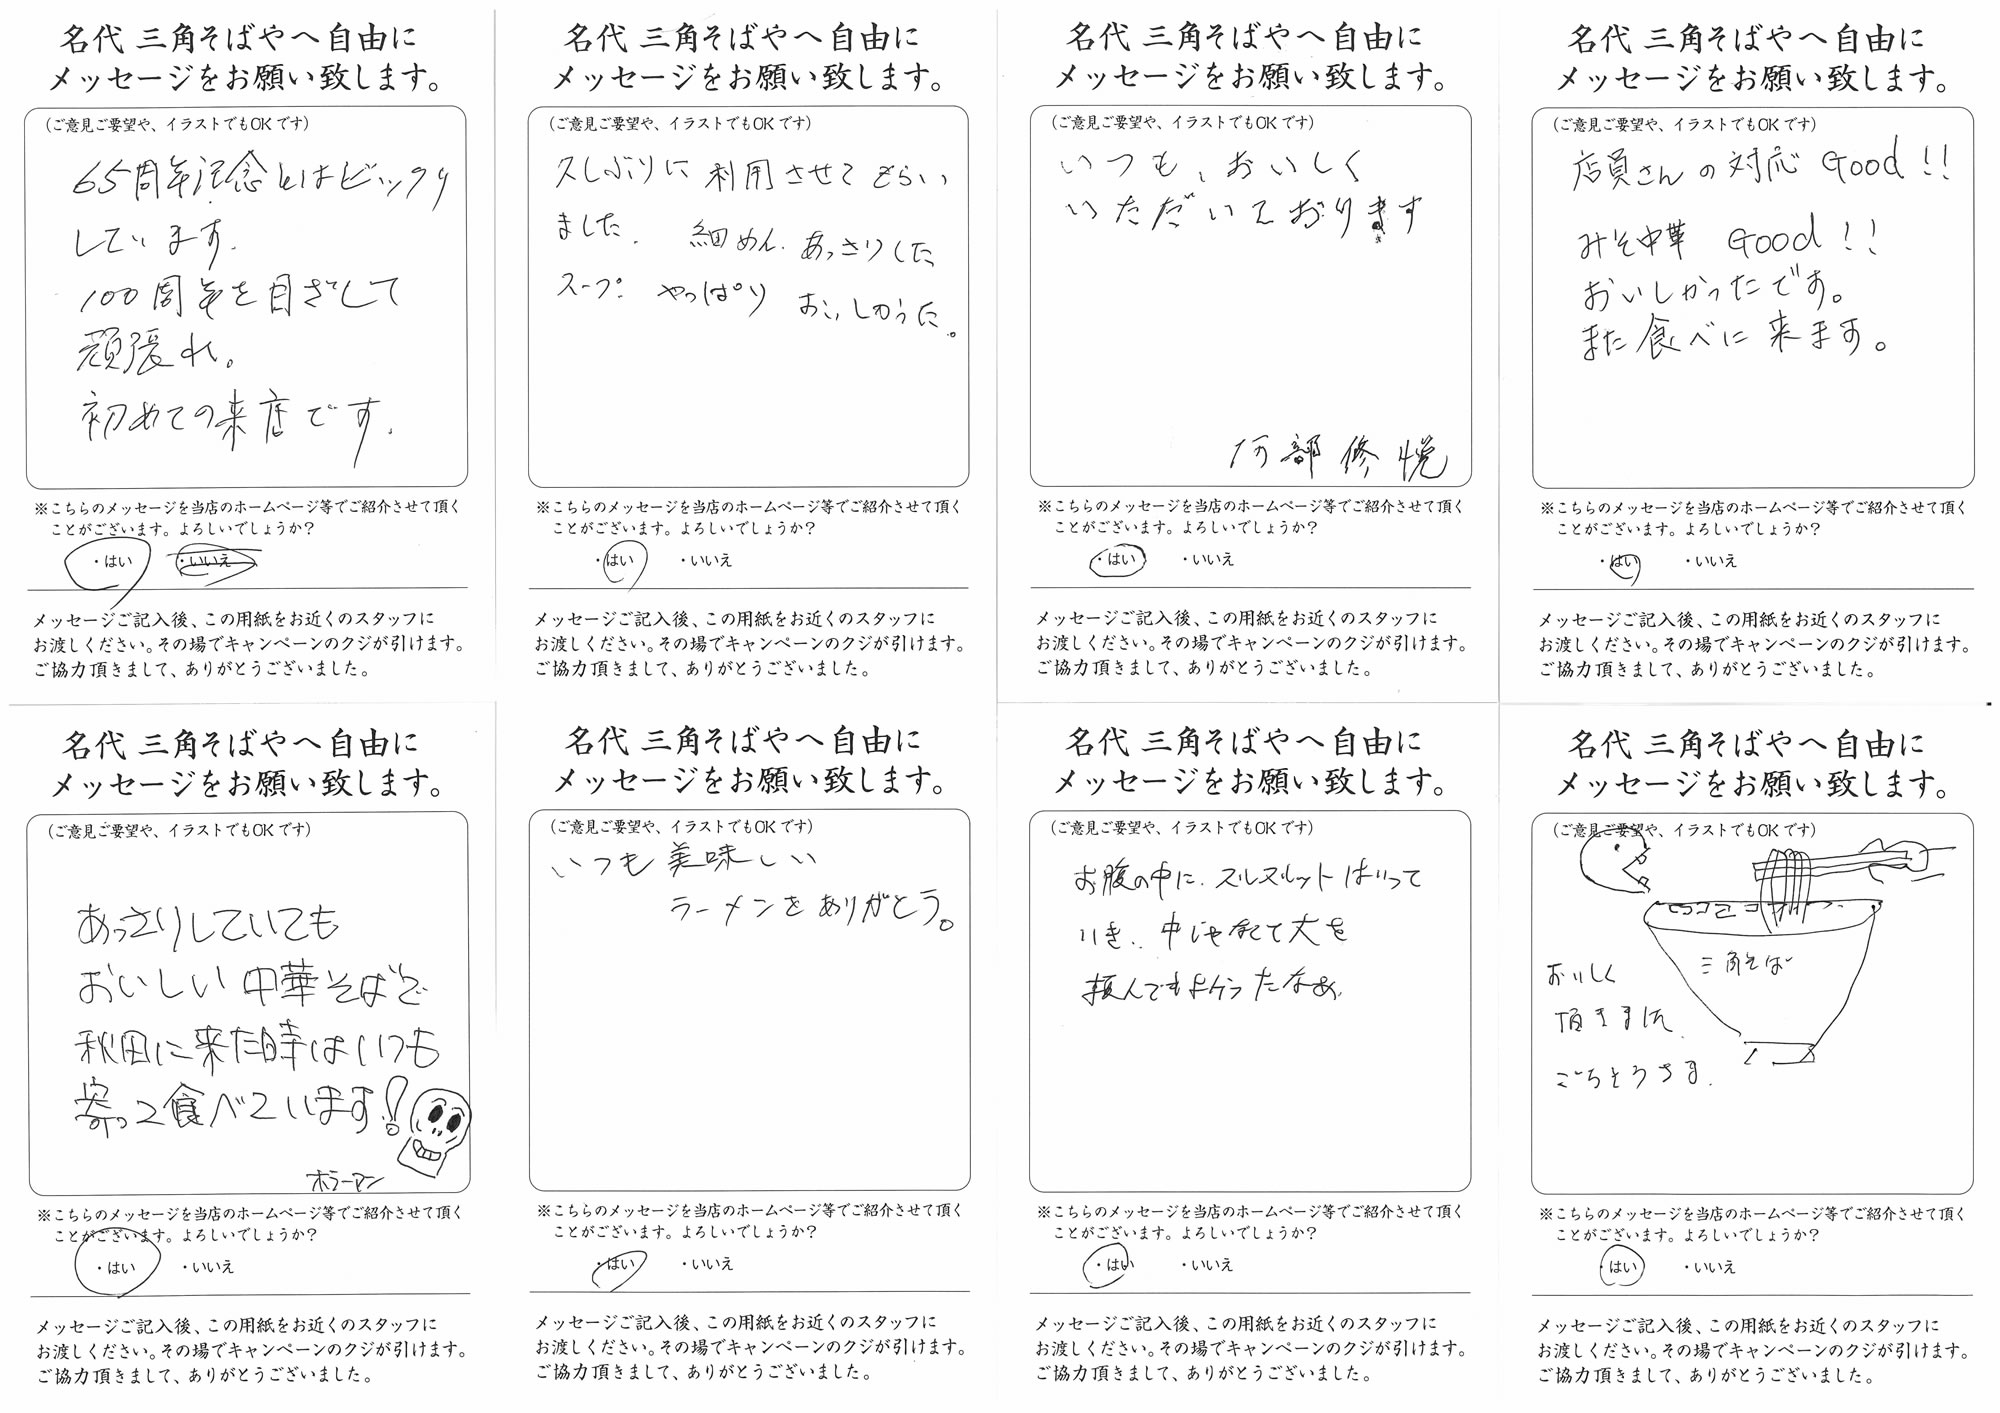 名代 三角そばやへ自由に
メッセージをお願い致します。
(ご意見ご要望や、イラストでもOKです)
65周年記念とはビックリ
しています.
100周年を目ざして
頑張れ。
初めての来店です.
※こちらのメッセージを当店のホームページ等でご紹介させて頂く
ことがございます。よろしいでしょうか?
・はい ・いいえ
メッセージご記入後、この用紙をお近くのスタッフに
お渡しください。その場でキャンペーンのクジが引けます。
ご協力頂きまして、ありがとうございました。
名代 三角そばやへ自由に
メッセージをお願い致します。
(ご意見ご要望や、イラストでもOKです)
久しぶりに 利用させてもらい
ました. 細めん. あっさりした
スープ. やっぱり おいしかった。
※こちらのメッセージを当店のホームページ等でご紹介させて頂く
ことがございます。よろしいでしょうか?
・はい ・いいえ
メッセージご記入後、この用紙をお近くのスタッフに
お渡しください。その場でキャンペーンのクジが引けます。
ご協力頂きまして、ありがとうございました。
名代 三角そばやへ自由に
メッセージをお願い致します。
(ご意見ご要望や、イラストでもOKです)
いつも、おいしく
いただいております
阿部修悦
※こちらのメッセージを当店のホームページ等でご紹介させて頂く
ことがございます。よろしいでしょうか?
・はい ・いいえ
メッセージご記入後、この用紙をお近くのスタッフに
お渡しください。その場でキャンペーンのクジが引けます。
ご協力頂きまして、ありがとうございました。
名代 三角そばやへ自由に
メッセージをお願い致します。
(ご意見ご要望や、イラストでもOKです)
店員さんの対応 Good!!
みそ中華 Good!!
おいしかったです。
また食べに来ます。
※こちらのメッセージを当店のホームページ等でご紹介させて頂く
ことがございます。よろしいでしょうか?
・はい ・いいえ
メッセージご記入後、この用紙をお近くのスタッフに
お渡しください。その場でキャンペーンのクジが引けます。
ご協力頂きまして、ありがとうございました。
名代 三角そばやへ自由に
メッセージをお願い致します。
(ご意見ご要望や、イラストでもOKです)
あっさりしていても
おいしい中華そばで
秋田に来た時はいつも
寄って食べています!
ホラーマン
※こちらのメッセージを当店のホームページ等でご紹介させて頂く
ことがございます。よろしいでしょうか?
・はい ・いいえ
メッセージご記入後、この用紙をお近くのスタッフに
お渡しください。その場でキャンペーンのクジが引けます。
ご協力頂きまして、ありがとうございました。
名代 三角そばやへ自由に
メッセージをお願い致します。
(ご意見ご要望や、イラストでもOKです)
いつも美味しい
ラーメンをありがとう。
※こちらのメッセージを当店のホームページ等でご紹介させて頂く
ことがございます。よろしいでしょうか?
・はい ・いいえ
メッセージご記入後、この用紙をお近くのスタッフに
お渡しください。その場でキャンペーンのクジが引けます。
ご協力頂きまして、ありがとうございました。
名代 三角そばやへ自由に
メッセージをお願い致します。
(ご意見ご要望や、イラストでもOKです)
お腹の中に、スルスルット はいって
いき、中じゃなくて大を
頼んでもよかったなあ.
※こちらのメッセージを当店のホームページ等でご紹介させて頂く
ことがございます。よろしいでしょうか?
・はい ・いいえ
メッセージご記入後、この用紙をお近くのスタッフに
お渡しください。その場でキャンペーンのクジが引けます。
ご協力頂きまして、ありがとうございました。
名代 三角そばやへ自由に
メッセージをお願い致します。
(ご意見ご要望や、イラストでもOKです)
三角そば
おいしく
頂きました.
ごちそうさま.
※こちらのメッセージを当店のホームページ等でご紹介させて頂く
ことがございます。よろしいでしょうか?
・はい ・いいえ
メッセージご記入後、この用紙をお近くのスタッフに
お渡しください。その場でキャンペーンのクジが引けます。
ご協力頂きまして、ありがとうございました。